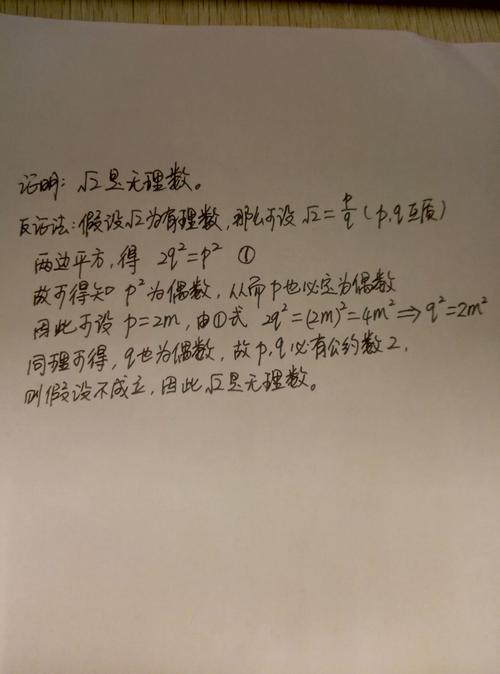 证明: √2是无理数。
反证法: 假设√2为有理数, 那么可设 √2 = p/q (p,q互质)
两边平方, 得 2q²=p² ①
故可得知 p²为偶数, 从而p也必定为偶数
因此可设 p=2m, 由①式 2q²=(2m)²=4m² ⇒ q²=2m²
同理可得, q也为偶数, 故p,q必有公约数2,
则假设不成立, 因此√2是无理数。